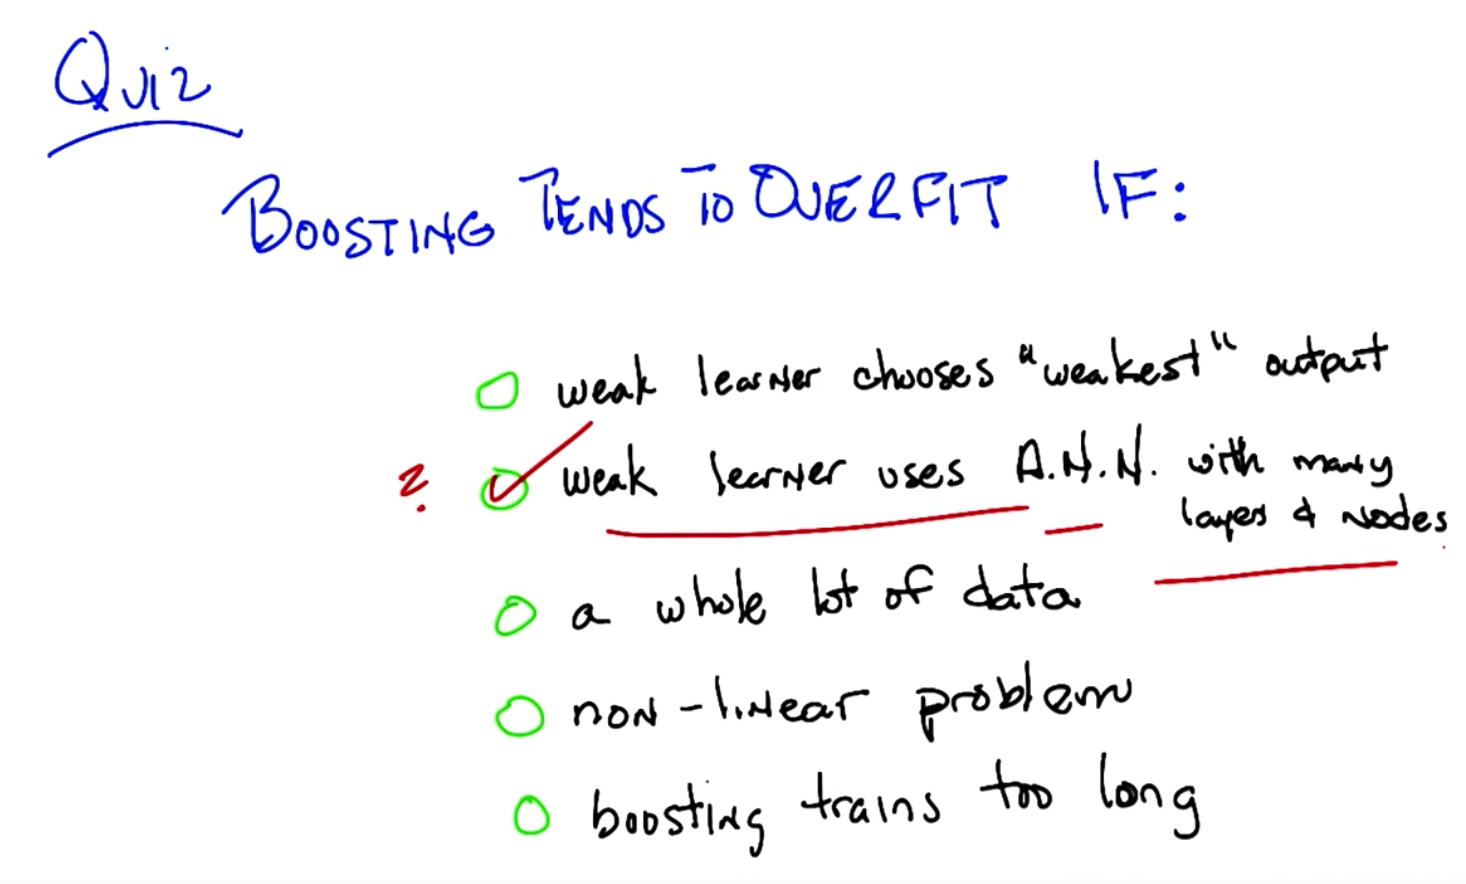 Quiz
BOOSTING TENDS TO OVERFIT IF:
weak learner chooses "weakest" output
? weak learner uses A.N.N. with many
layers & nodes
a whole lot of data
non-linear problem
boosting trains too long